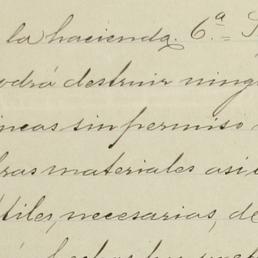 la hacienda. 6.ª
odrá destruir ning
neas sin permiso
ras materiales asi
tiles, necesarias, de